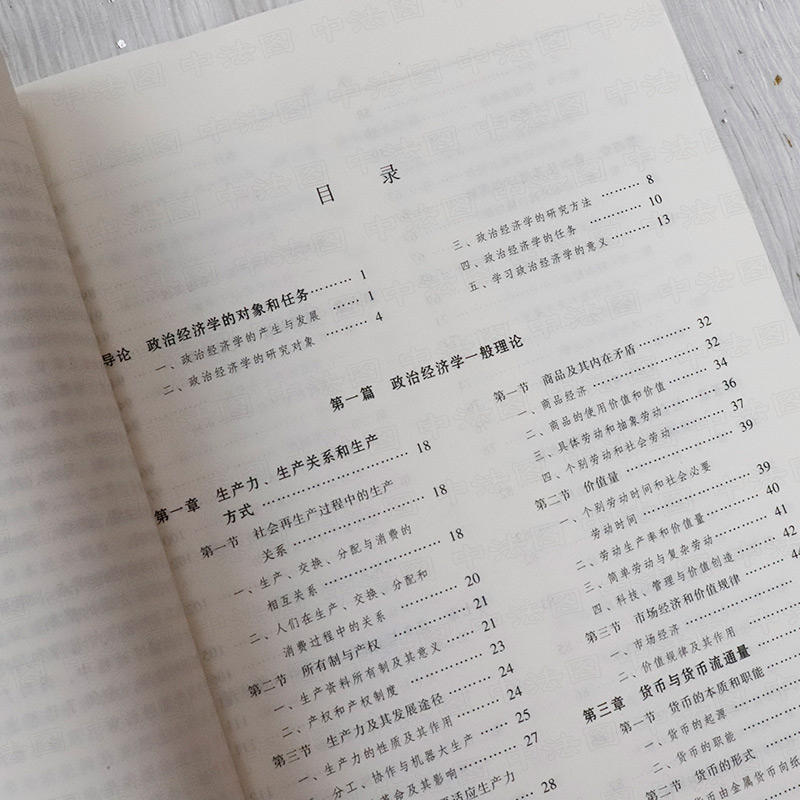 目 录
导论 政治经济学的对象和任务 1
一、政治经济学的产生与发展 1
二、政治经济学的研究对象 4
三、政治经济学的研究方法 8
四、政治经济学的任务 10
五、学习政治经济学的意义 13
第一篇 政治经济学一般理论
第一章 生产力、生产关系和生产
方式 18
第一节 社会再生产过程中的生产
关系 18
一、生产、交换、分配与消费的
相互关系 18
二、人们在生产、交换、分配和
消费过程中的关系 20
第二节 所有制与产权 21
一、生产资料所有制及其意义 21
二、产权和产权制度 23
第三节 生产力及其发展途径 24
一、生产力的性质及其作用 24
二、分工、协作与机器大生产 25
革命及其影响 27
适应生产力
28
第一节 商品及其内在矛盾 32
一、商品经济 32
二、商品的使用价值和价值 34
三、具体劳动和抽象劳动 36
四、个别劳动和社会劳动 37
第二节 价值量 39
一、个别劳动时间和社会必要
劳动时间 39
二、劳动生产率和价值量 40
三、简单劳动与复杂劳动 41
四、科技、管理与价值创造 42
第三节 市场经济和价值规律 44
一、市场经济
二、价值规律及其作用
第三章 货币与货币流通量
第一节 货币的本质和职能
一、货币的起源
二、货币的职能
第二节 货币的形式
货币由金属货币向纸
中法图